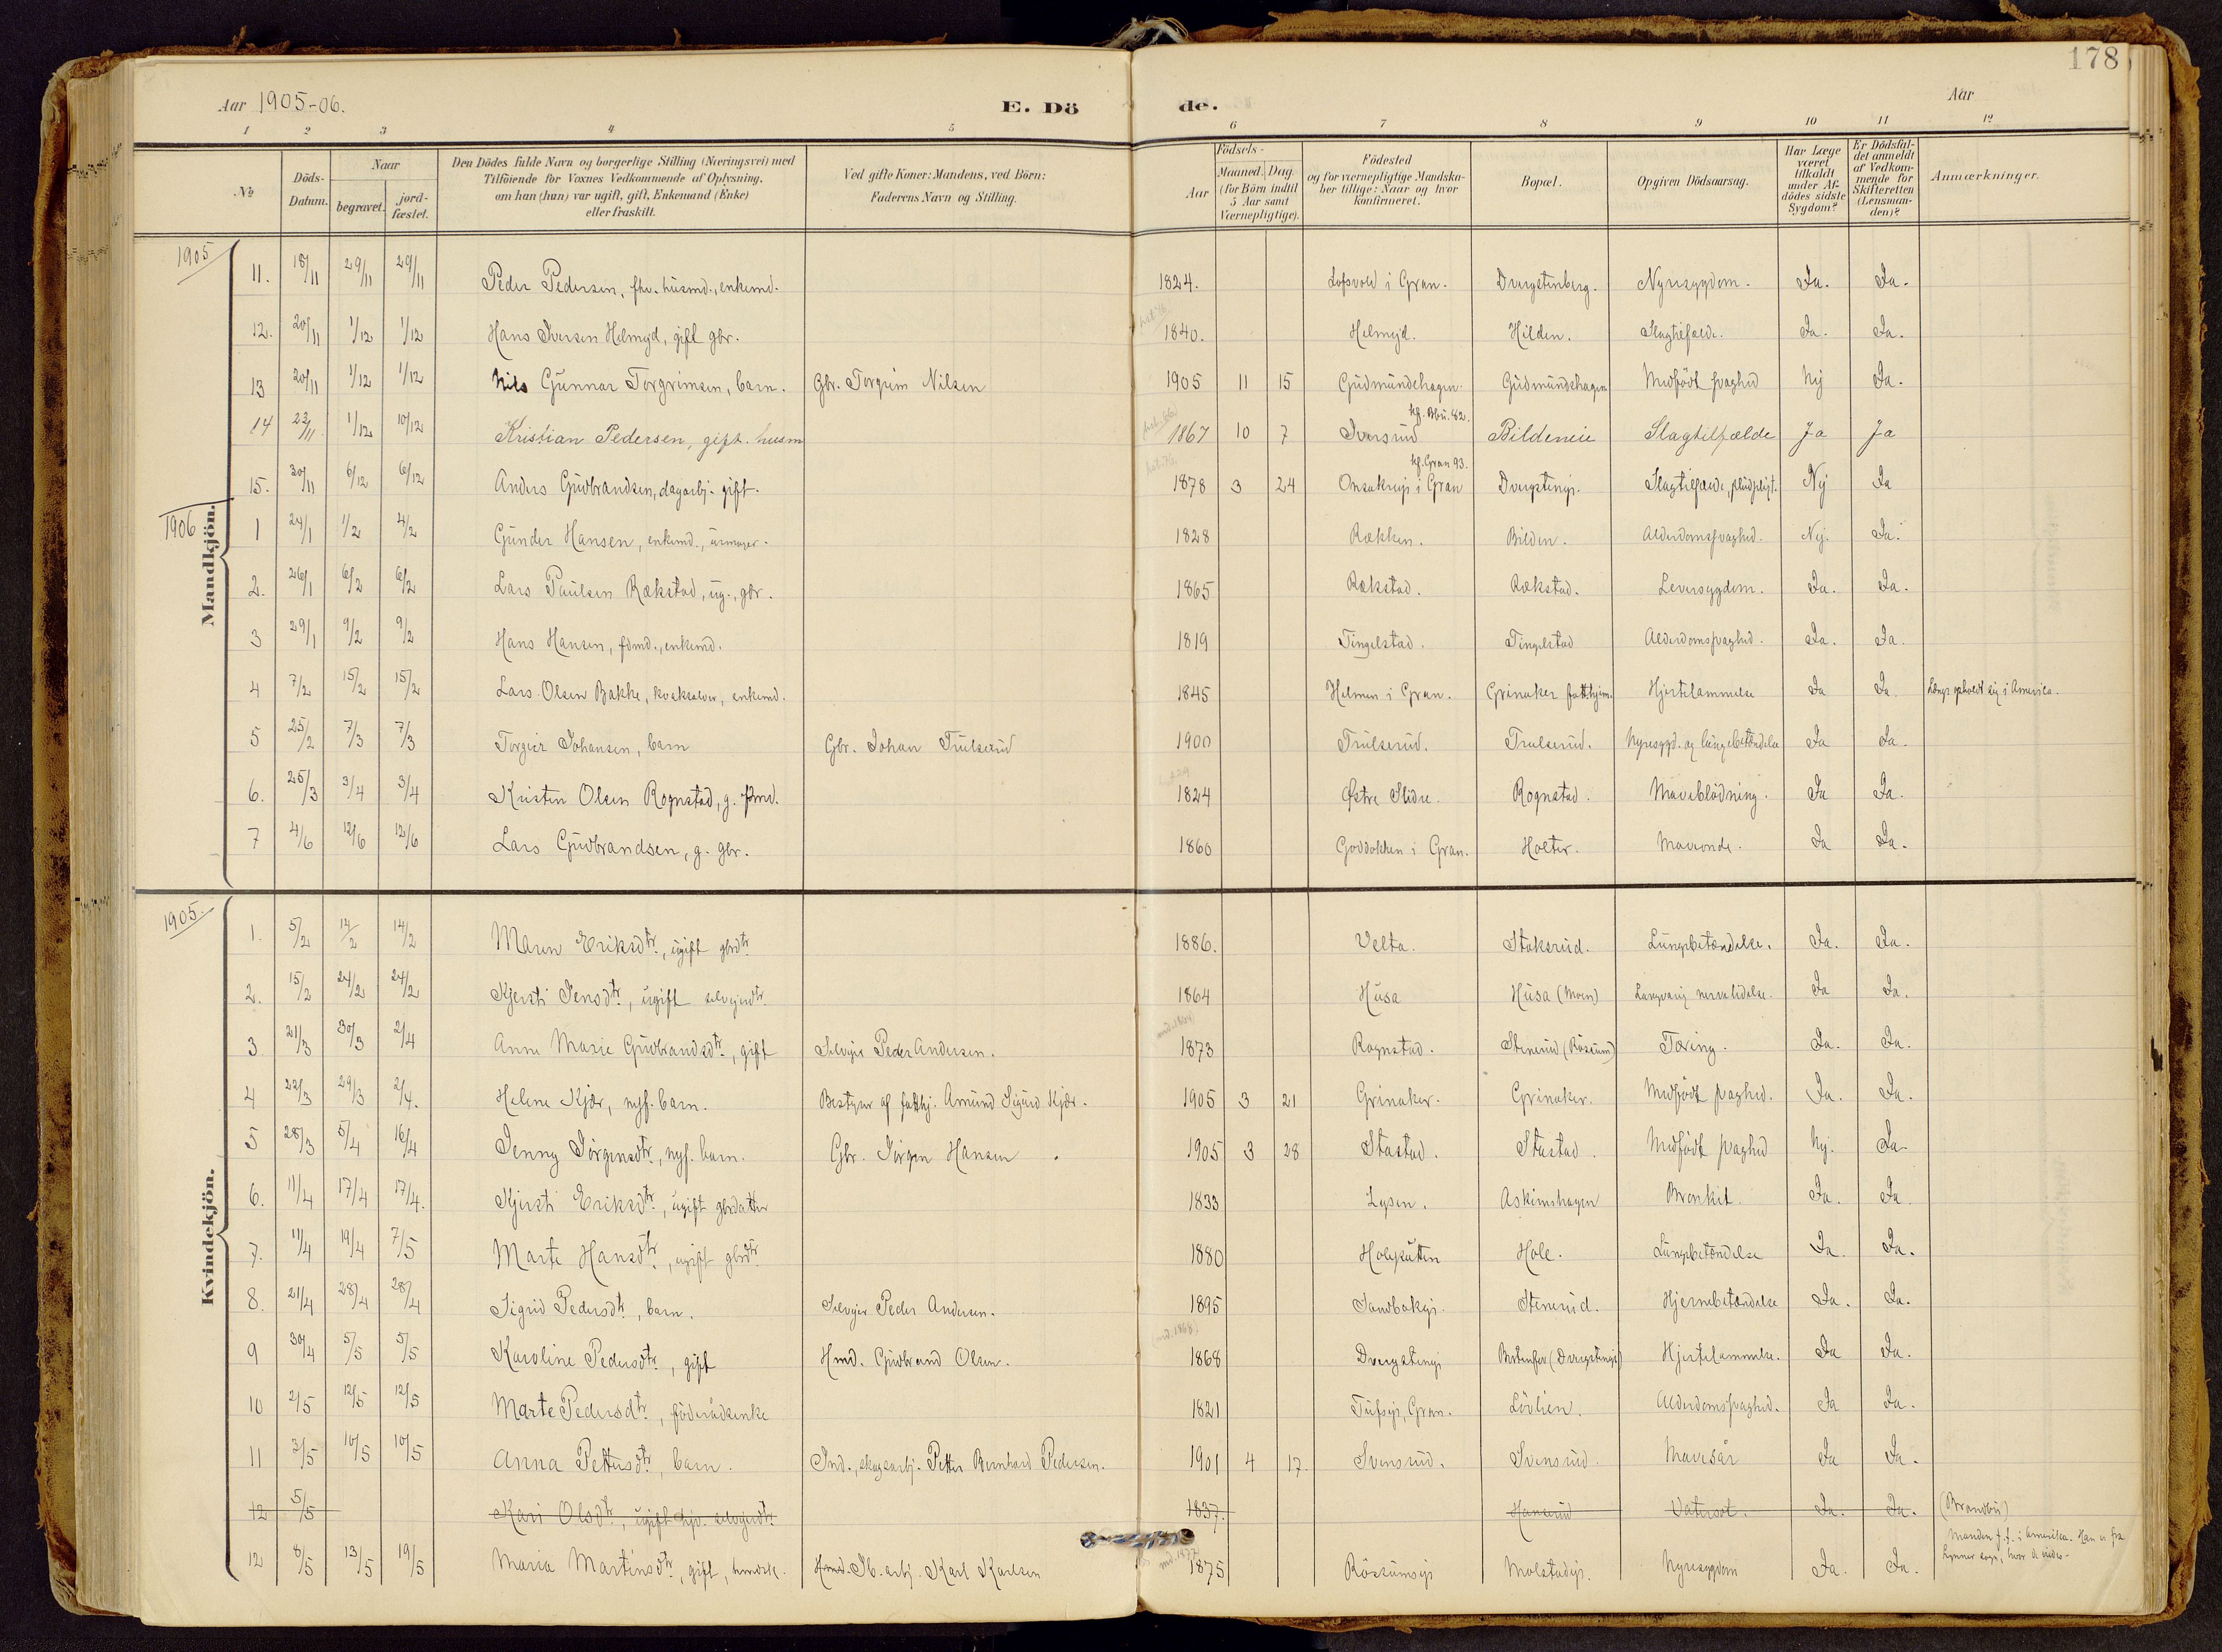 178
Aar 1905-06. E. Dö de. Aar
1 2 3 4 5 6 7 8 9 10 11 12
No Döds-Datum. Naar begravet. jord-fæstet. Den Dödes fulde Navn og borgerlige Stilling (Næringsvei) med Tilföiende for Voxnes Vedkommende af Oplysning, om han (hun) var ugift, gift, Enkemand (Enke) eller fraskilt. Ved gifte Koner: Mandens, ved Börn: Faderens Navn og Stilling. Födsels- Aar Maaned. Dag (for Börn indtil 5 Aar samt Værnepligtige). Födested og for værnepligtige Mandskaber tillige: Naar og hvor konfirmeret. Bopæl. Opgiven Dödsaarsag. Har Læge været tilkaldt under Afdödes sidste Sygdom? Er Dödsfaldet anmeldt af Vedkommende for Skifteretten (Lensmanden)? Anmærkninger.
1905
Mandkjön.
11. 18/11 29/11 29/11 Peder Pedersen, fhv. husmd., enkemd. 1824. Lofsvold i Gran. Dvergstenberg. Nyresygdom. Ja. Ja.
12. 20/11 1/12 1/12 Hans Iversen Helmeid, gift gbr. 1840. Helmeid. Hilden. Slagtilfælde. Ja. Ja.
13 20/11 1/12 1/12 Nils Gunnar Torgrimsen, barn. Gbr. Torgrim Nilsen 1905 11 15 Gudmundshagen. Gudmundshagen Medfødt svaghed Nej Ja.
14 23/11 1/12 10/12 Kristian Pedersen, gift. husm 1867 10 7 Iversrud kf. Bbu. 82. Bildeneie Slagtilfælde Ja Ja
15. 30/11 6/12 6/12 Anders Gudbrandsen, dagarbj. gift. 1878 3 24 i Gran kf. Gran 93. Dvergstenejs. Slagtilfælde, Nej Ja
1906
1 24/1 1/2 4/2 Gunder Hansen, enkemd., urmager. 1828 Rækken. Bilden. Alderdomssvaghed. Nej. Ja.
2. 26/1 6/2 6/2 Lars Paulsen Rækstad, ug., gbr. 1865 Rækstad. Rækstad. Leversygdom. Ja. Ja.
3 29/1 9/2 9/2 Hans Hansen, fdmd., enkemd. 1819 Tingelstad. Tingelstad Alderdomssvaghed. Ja. Ja.
4 7/2 15/2 15/2 Lars Olsen Bakke, kvaksalver, enkemd. 1845 Helmen i Gran. Grinaker fatthjem. Hjertelammelse Ja Ja. Længe opholdt sig i Amerika.
5 25/2 7/3 7/3 Torgeir Johansen, barn Gbr. Johan Trulserud 1900 Trulserud. Trulserud. Nyresygd. og lungebetændelse Ja Ja.
6. 25/3 3/4 3/4 Kristen Olsen Rognstad, g. fdmd. 1824 Østre Slidre. Rognstad. Maveblödning. Ja Ja.
7 4/6 12/6 12/6 Lars Gudbrandsen, g. gbr. 1860 Goddokken i Gran. Holter. Maveonde. Ja Ja.
1905.
Kvindekjön.
1. 5/2 14/2 14/2 Maren Eriksdtr., ugift gbrdtr. 1886. Velta. Staksrud. Lungebetændelse. Ja. Ja.
2. 15/2 24/2 24/2 Kjersti Jensdtr., ugift selvejerdtr. 1864 Husa Husa (Moen) Langvarig nervelidelse. Ja Ja.
3. 21/3 30/3 2/4 Anne Marie Gudbrandsdtr., gift Selvejer Peder Andersen. 1873 Rognstad. Stenerud (Røssum) Tæring. Ja. Ja.
4 22/3 29/3 2/4. Helene Kjær, nyf. barn. Bestyrer af fatthj. Amund Sigurd Kjær. 1905 3 21 Grinaker. Grinaker. Medfødt svaghed. Ja. Ja.
5 28/3 5/4 16/4 Jenny Jørgensdtr., nyf. barn. Gbr. Jørgen Hansen 1905 3 28 Stastad. Stastad. Medfødt svaghed Nej. Ja.
6. 11/4 17/4 17/4. Kjersti Eriksdtr., ugift gbrdatter 1833 Lysen. Askimshagen Bronkit. Ja. Ja.
7. 11/4 19/4 7/5 Marte Hansdtr., ugift gbrdtr. 1880 Hole. Lungebetændelse Ja. Ja.
8. 21/4 28/4 28/4 Sigrid Pedersdtr., barn. Selvejer Peder Andersen. 1895 Stenerud. Hjernebetændelse Ja. Ja.
9 30/4 5/5 5/5 Karoline Pedersdtr., gift Hmd. Gudbrand Olsen. 1868 Dvergstenejs (Dvergstenejs) Hjertelammelse. Ja Ja.
10 2/5 12/5 12/5 Marte Pedersdtr., föderådsenke 1821 Tufsejs, Gran. Lövlien. Alderdomssvaghed. Ja Ja.
11 3/5 10/5 10/5 Anna Pettersdtr., barn. Ind., skogsarbj. Petter Bernhard Pedersen. 1901 4 17. Svensrud. Svensrud. Mavesår Ja Ja.
12 5/5 Kari Olsdtr., ugift fhv. selvejerdtr. 1837. Hansrud Vatersot. Ja. Ja. (Brandbu)
12 8/5 13/5 19/5 Maria Martinsdtr., gift, Hmd. Jb. arbj. Karl Karlsen 1875 Røssumejs Molstadejs. Nyresygdom Ja. Ja. Manden f. t. i Amerika. Han er fra Lunner sogn, hvor de viedes.